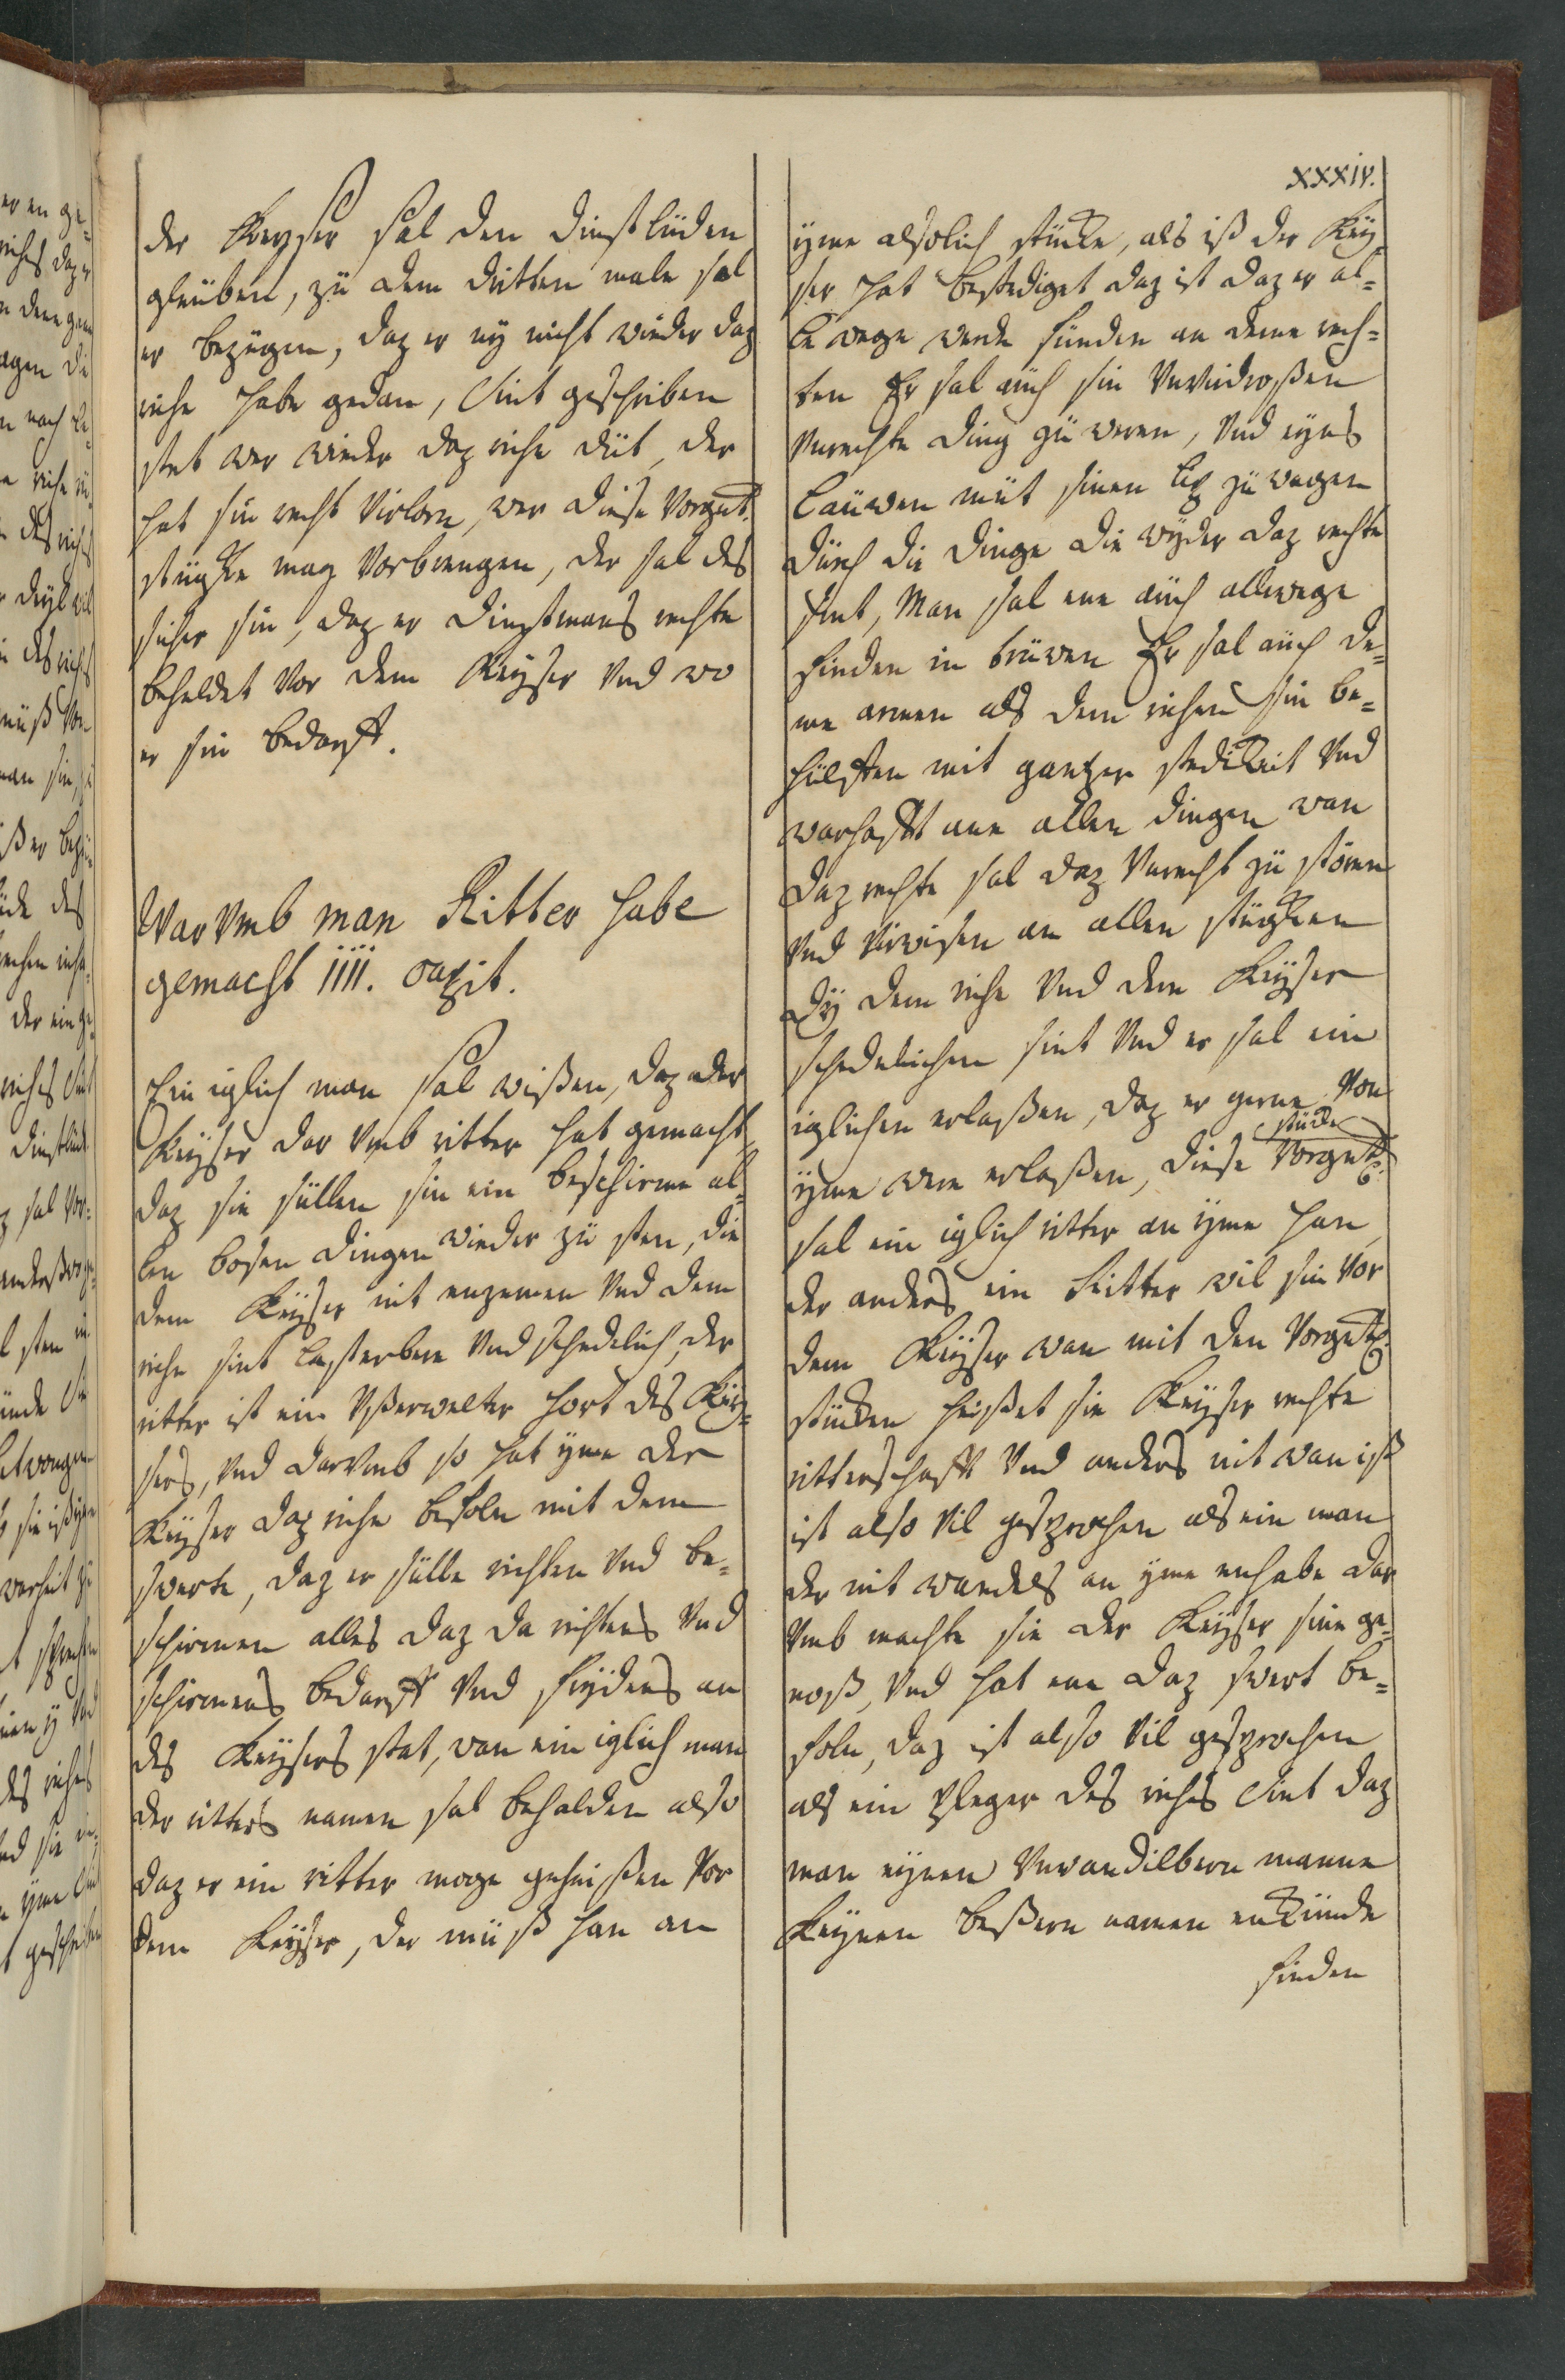 xxxiv.
der Keyser sal den dinstlüden
gleuben, zü dem dritten male sal
er bezügen, daz er ny nicht wieder daz
riche habe gedan, Sint geschriben
stet wer wieder daz riche düt, der
hat sin recht virlorn, wer diese Vorgnt.
stügke mag Vorbrengen, der sal des
sicher sin, daz er dinstmans rechte
beheldet Vor dem Keyser Vnd wo
er sin bedarff.
War Vmb man Ritter habe
gemacht IIII. capit.
Ein iglich man sal wißen, daz der
Keyser dar Vmb ritter hat gemacht,
daz sie süllen sin ein beschirme al=
len bosen dingen wieder zü sten, die
dem Keyser nit enzemen Vnd dem
riche sint lasterbere Vnd schedelich, der
ritter ist ein Vßerwelter hort des Key=
sers, Vnd darVmb so hat yme der
Keyser daz riche befoln mit dem
swerte, daz er sülle richten Vnd be=
schirmen alles daz da richtens Vnd
schirmens bedarff Vnd frydens an
des Keysers stat, wan ein iglich man
der ritters namen sal behalden also
daz er ein ritter moge geheißen Vor
dem Keyser, der müß han an
yme alsolich stücke, als iß der Key
ser hat bestediget daz ist daz er al=
le wege werde fünden an deme rech=
ten Er sal auch sin Vnverdroßen
Vnrechte ding zü weren, Vnd eyns
Lauwen müt sinen lip zü wagen
dürch die dinge die wyder daz rechte
sint, Man sal ene auch allewege
finden in trüwen Er sal auch de=
me armen als dem richen sin be=
hülffen mit gantzer stedikeit Vnd
warhafft ane allen dingen wan
daz rechte sal daz Vnrecht zü stören
Vnd Virwisen an allen stügken
dy dem riche Vnd dem Keyser
schedelichen sint Vnd er sal ein
iglichen erlaßen, daz er gerne Von
yme were erlaßen, diese Vorgnt. stücke
sal ein iglich ritter an yme han,
der anders ein Ritter wil sin Vor
dem Keyser wan mit den Vorgnt.
stücken heißet sie Keyser rechte
ritterschafft Vnd anders nit wan iß
ist also Vil gesprochen als ein man
der nit wandels an yme enhabe dar
Vmb machte sie der Keyser sine ge=
noß, Vnd hat ene daz swert be=
foln, daz ist also Vil gesprochen
als ein pfleger des richs Sint daz
man eynen Vnwandilbern manne
Keynen beßern namen enkünde
finden